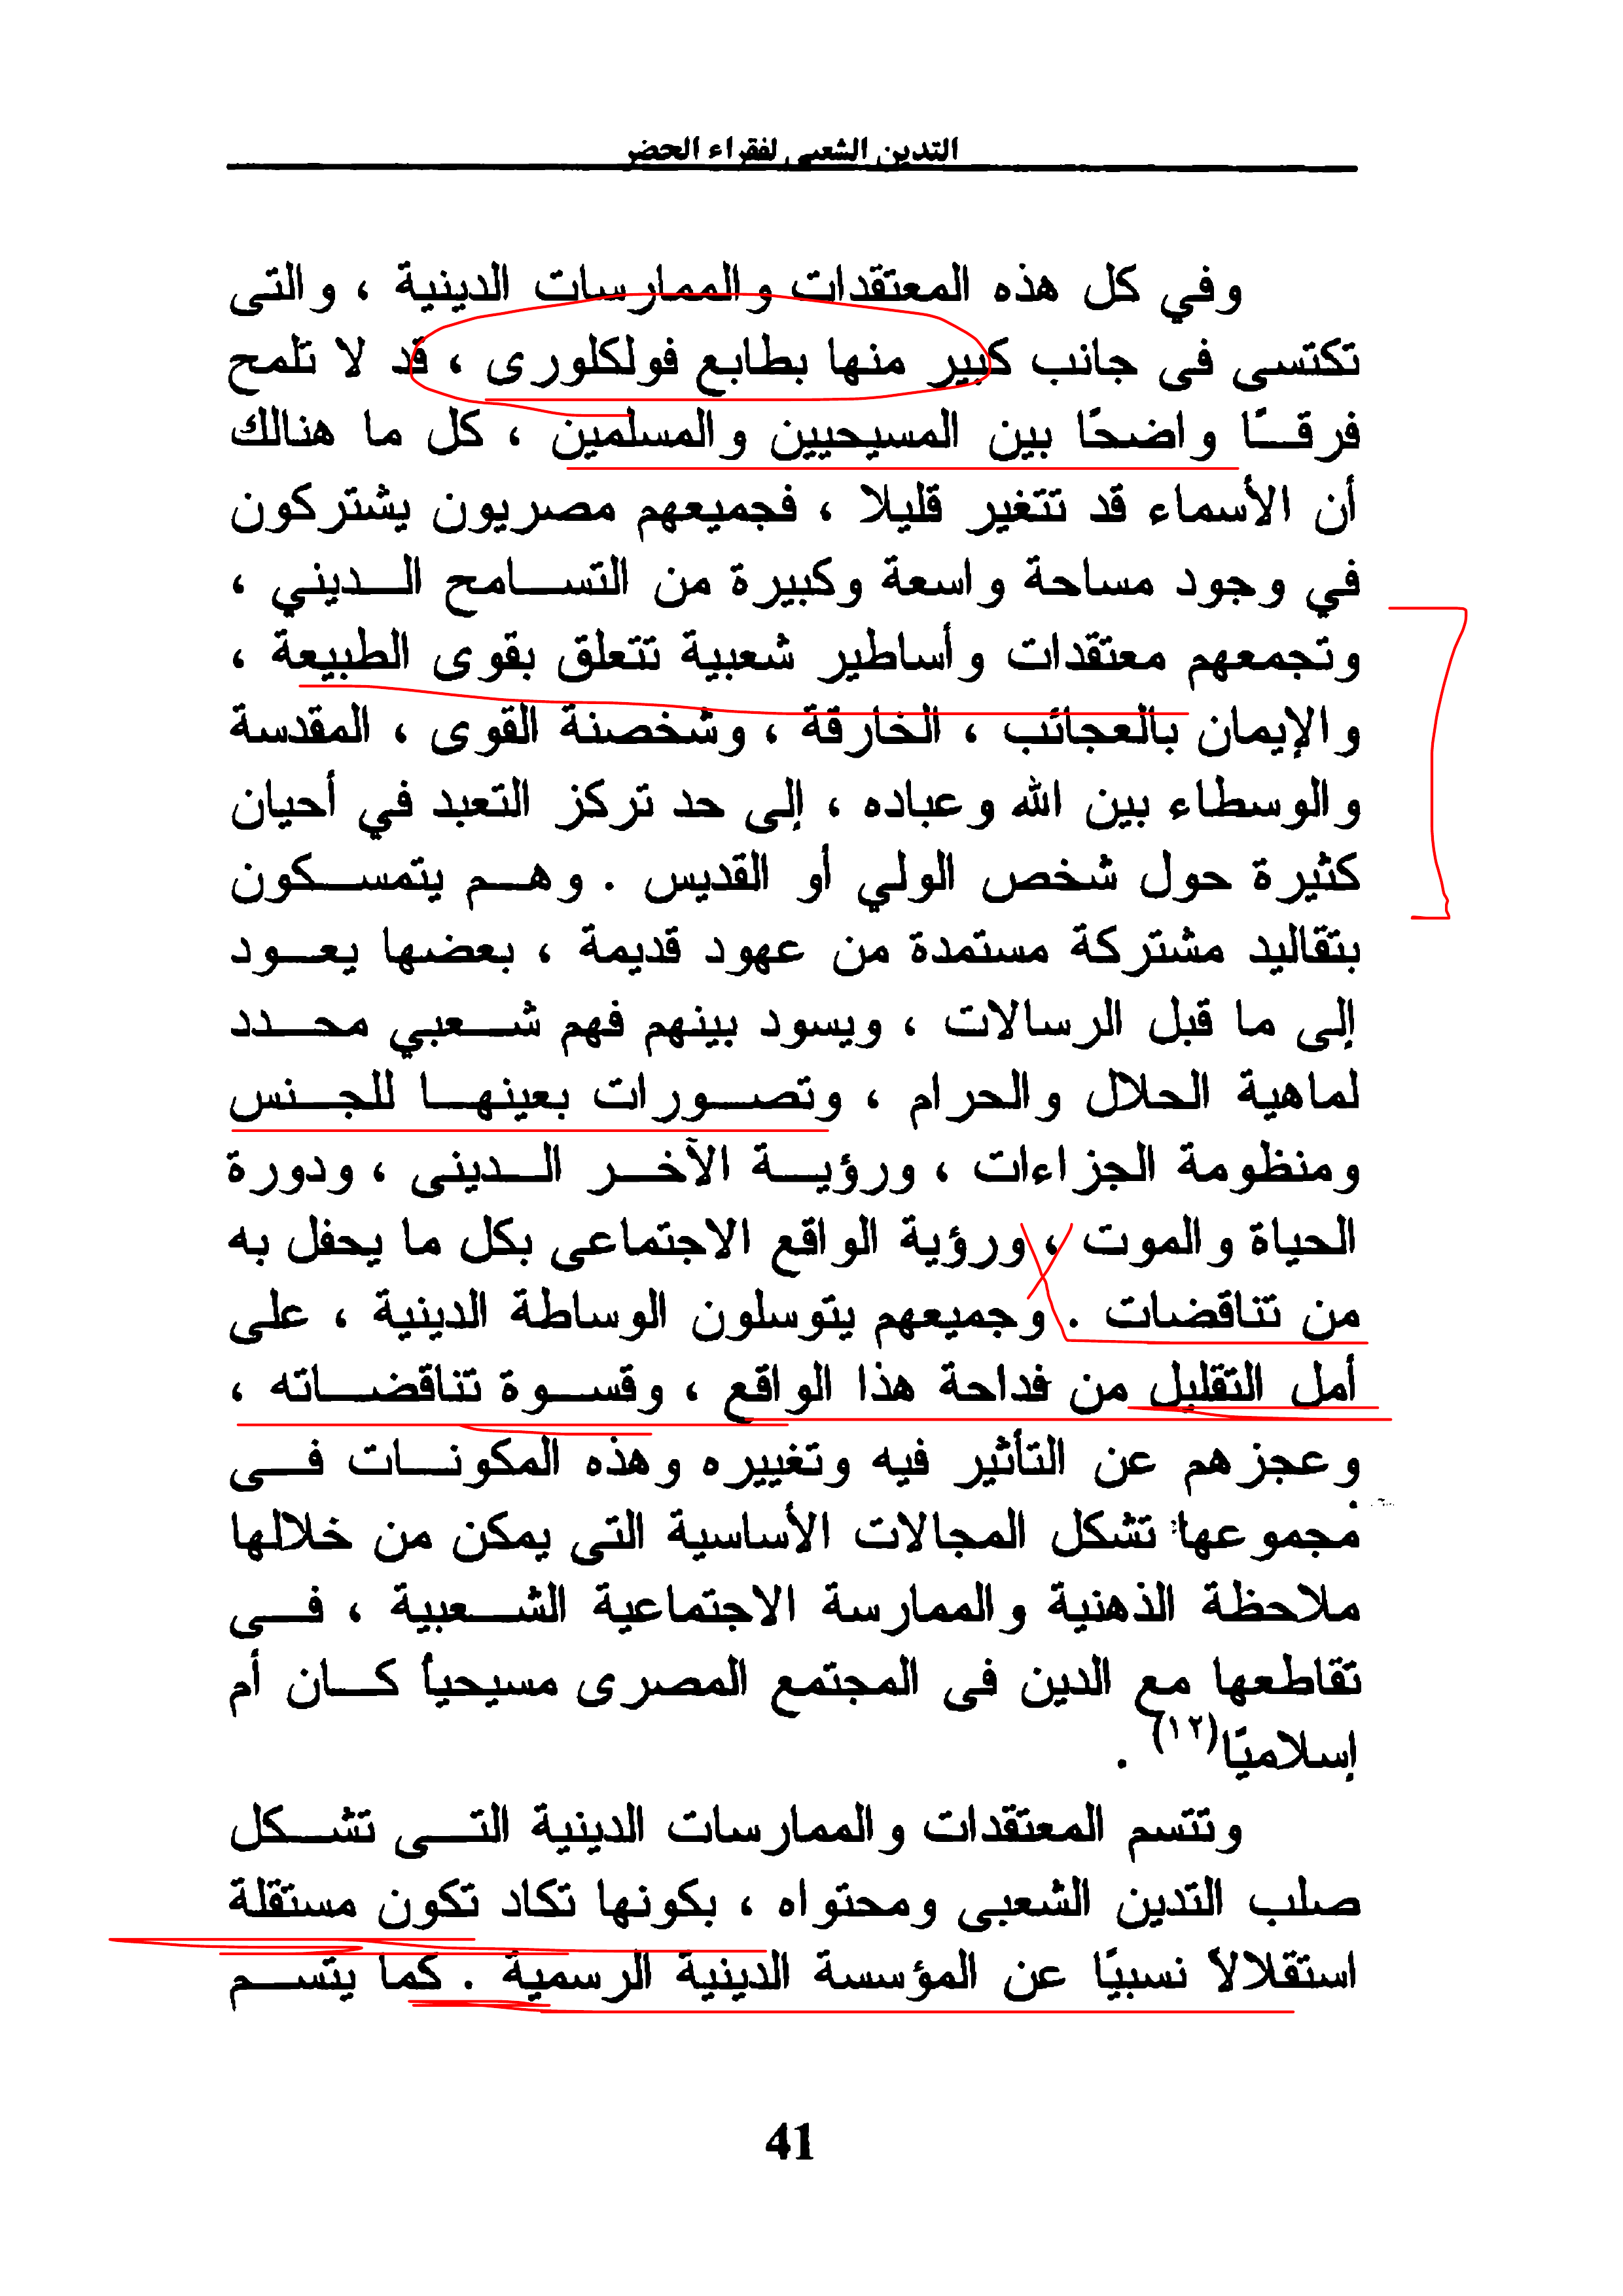 التدين الشعبى لفقراء الحضر
وفي كل هذه المعتقدات والممارسات الدينية ، والتى
تكتسى فى جانب كبير منها بطابع فولكلورى ، قد لا تلمح
فرقـــًا واضحًا بين المسيحيين والمسلمين ، كل ما هنالك
أن الأسماء قد تتغير قليلا ، فجميعهم مصريون يشتركون
في وجود مساحة واسعة وكبيرة من التســـامح الـــديني ،
وتجمعهم معتقدات وأساطير شعبية تتعلق بقوى الطبيعة ،
والإيمان بالعجائب ، الخارقة ، وشخصنة القوى ، المقدسة
والوسطاء بين الله وعباده ، إلى حد تركز التعبد في أحيان
كثيرة حول شخص الولي أو القديس . وهـــم يتمســـكون
بتقاليد مشتركة مستمدة من عهود قديمة ، بعضها يعـــود
إلى ما قبل الرسالات ، ويسود بينهم فهم شـــعبي محـــدد
لماهية الحلال والحرام ، وتصـــورات بعينهـــا للجـــنس
ومنظومة الجزاءات ، ورؤيـــة الآخـــر الـــدينى ، ودورة
الحياة والموت ، ورؤية الواقع الاجتماعى بكل ما يحفل به
من تناقضات . وجميعهم يتوسلون الوساطة الدينية ، على
أمل التقليل من فداحة هذا الواقع ، وقســـوة تناقضـــاته ،
وعجزهم عن التأثير فيه وتغييره وهذه المكونـــات فـــى
مجموعها تشكل المجالات الأساسية التى يمكن من خلالها
ملاحظة الذهنية والممارسة الاجتماعية الشـــعبية ، فـــى
تقاطعها مع الدين فى المجتمع المصرى مسيحيأ كـــان أم
إسلاميًا(١٢) .
وتتسم المعتقدات والممارسات الدينية التـــى تشـــكل
صلب التدين الشعبى ومحتواه ، بكونها تكاد تكون مستقلة
استقلالاً نسبيًا عن المؤسسة الدينية الرسمية . كما يتســـم
41